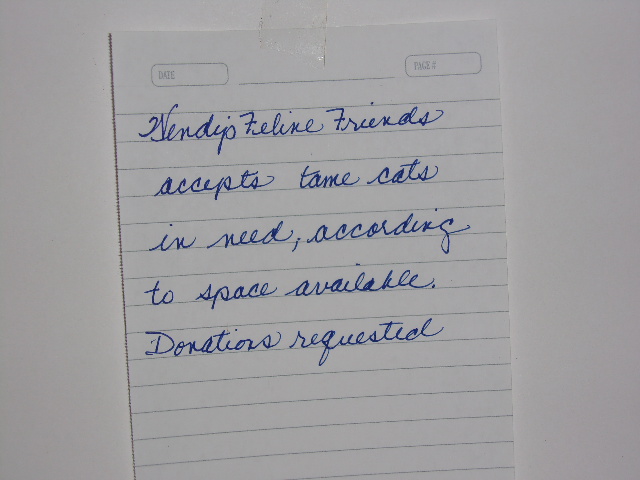 DATE
PAGE #
Wendy's Feline Friends
accepts tame cats
in need, according
to space available.
Donations requested